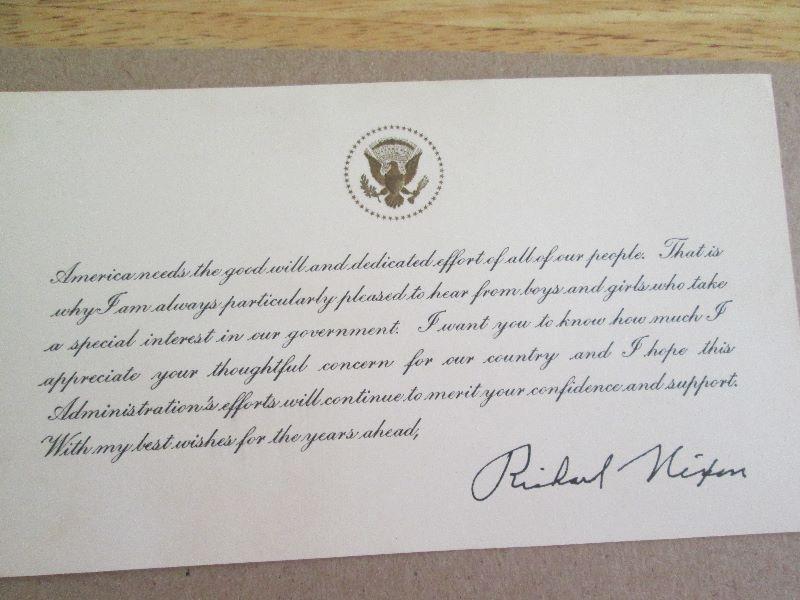 America needs the good will and dedicated effort of all of our people. That is
why I am always particularly pleased to hear from boys and girls who take
a special interest in our government. I want you to know how much I
appreciate your thoughtful concern for our country and I hope this
Administration's efforts will continue to merit your confidence and support.
With my best wishes for the years ahead,
Richard Nixon